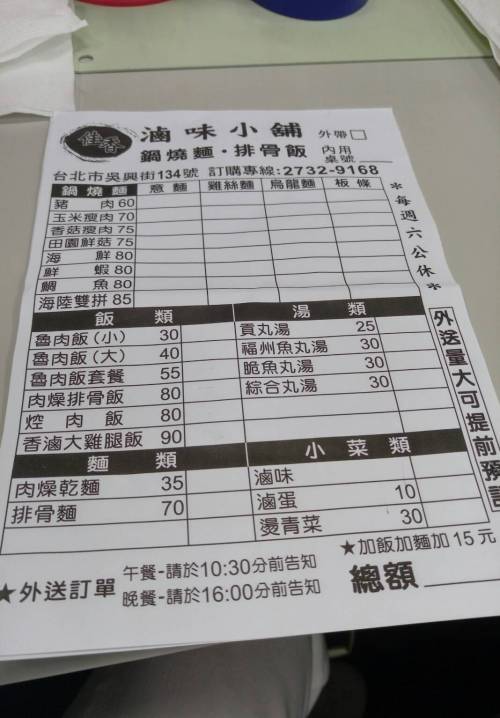 佳香 滷味小舖 外帶□
鍋燒麵·排骨飯 內用 桌號
台北市吳興街134號 訂購專線:2732-9168
鍋燒麵 意麵 雞絲麵 烏龍麵 板條
豬肉 60
玉米瘦肉 70
香菇瘦肉 75
田園鮮菇 75
海鮮 80
鮮蝦 80
鯛魚 80
海陸雙拼 85
*每週六公休*
飯類
魯肉飯(小) 30
魯肉飯(大) 40
魯肉飯套餐 55
肉燥排骨飯 80
焢肉飯 80
香滷大雞腿飯 90
湯類
貢丸湯 25
福州魚丸湯 30
脆魚丸湯 30
綜合丸湯 30
麵類
肉燥乾麵 35
排骨麵 70
小菜類
滷味
滷蛋 10
燙青菜 30
外送量大可提前預訂
★加飯加麵加15元
★外送訂單 午餐-請於10:30分前告知
晚餐-請於16:00分前告知
總額